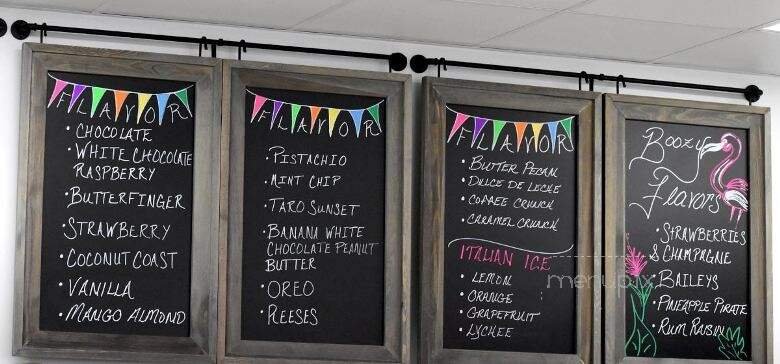 FLAVOR
• CHOCOLATE
• WHITE CHOCOLATE
RASPBERRY
• BUTTERFINGER
• STRAWBERRY
• COCONUT COAST
• VANILLA
• MANGO ALMOND
FLAVOR
• PISTACHIO
• MINT CHIP
• TARO SUNSET
• BANANA WHITE
CHOCOLATE PEANUT
BUTTER
• OREO
• REESES
FLAVOR
• BUTTER PECAN
• DULCE DE LECHE
• COFFEE CRUNCH
• CARAMEL CRUNCH
ITALIAN ICE
• LEMON
• ORANGE
• GRAPEFRUIT
• LYCHEE
Boozy
Flavors
• STRAWBERRIES
& CHAMPAGNE
• BAILEYS
• PINEAPPLE PIRATE
• RUM RAISIN
menupix